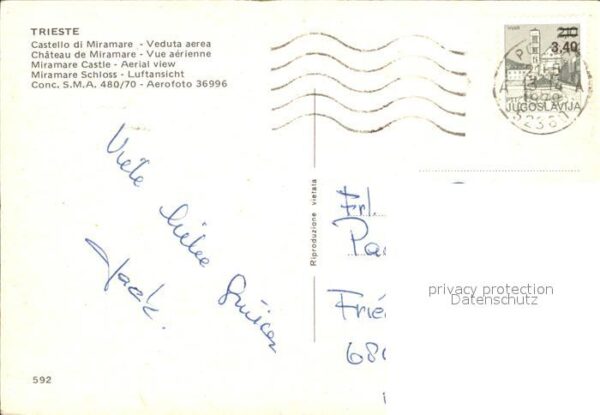 TRIESTE
Castello di Miramare - Veduta aerea
Château de Miramare - Vue aérienne
Miramare Castle - Aerial view
Miramare Schloss - Luftansicht
Conc. S.M.A. 480/70 - Aerofoto 36996
HVAR
2,10
3,40
JUGOSLAVIJA
A A
Viele liebe
Grüsse
Jack.
Riproduzione vietata
Frl.
Pa
Frie
680
privacy protection
Datenschutz
592